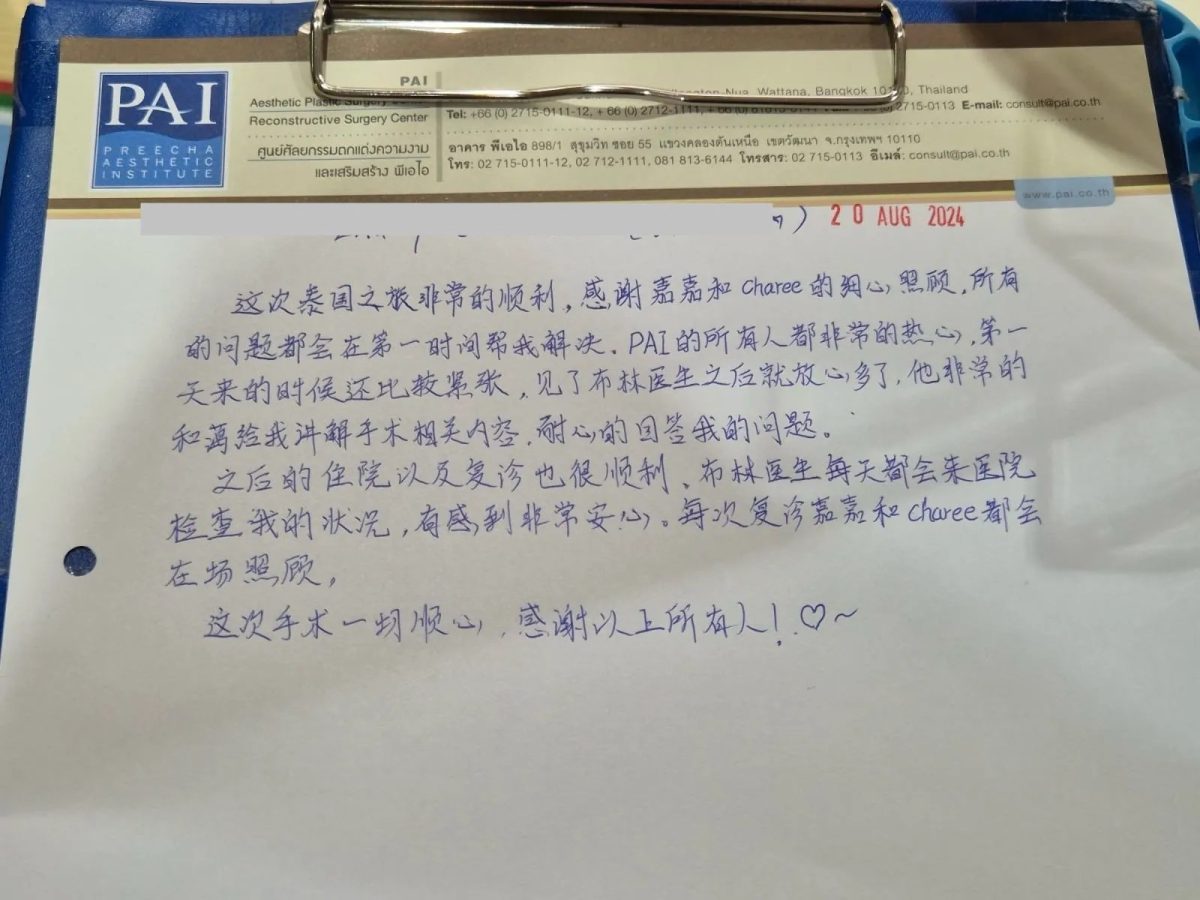 PAI
PREECHA
AESTHETIC
INSTITUTE
PAI
Aesthetic Plastic Surgery
Reconstructive Surgery Center
ศูนย์ศัลยกรรมตกแต่งความงาม
และเสริมสร้าง พีเอไอ
Nua, Wattana, Bangkok Thailand
Tel: +66 (0) 2715-0111-12, + 66 (0) 2712-1111, 2715-0113 E-mail: consult@pai.co.th
อาคาร พีเอไอ 898/1 สุขุมวิท ซอย 55 แขวงคลองตันเหนือ เขตวัฒนา จ.กรุงเทพฯ 10110
โทร: 02 715-0111-12, 02 712-1111, 081 813-6144 โทรสาร: 02 715-0113 อีเมล์: consult@pai.co.th
www.pai.co.th
) 20 AUG 2024
这次泰国之旅非常的顺利,感谢嘉嘉和charee的细心照顾,所有
的问题都会在第一时间帮我解决、PAI的所有人都非常的热心,第一
天来的时候还比较紧张,见了布林医生之后就放心多了,他非常的
和蔼给我讲解手术相关内容,耐心的回答我的问题。
之后的住院以及复诊也很顺利、布林医生每天都会来医院
检查我的状况,有感到非常安心。每次复诊嘉嘉和charee都会
在场照顾,
这次手术一切顺心,感谢以上所有人!♡~